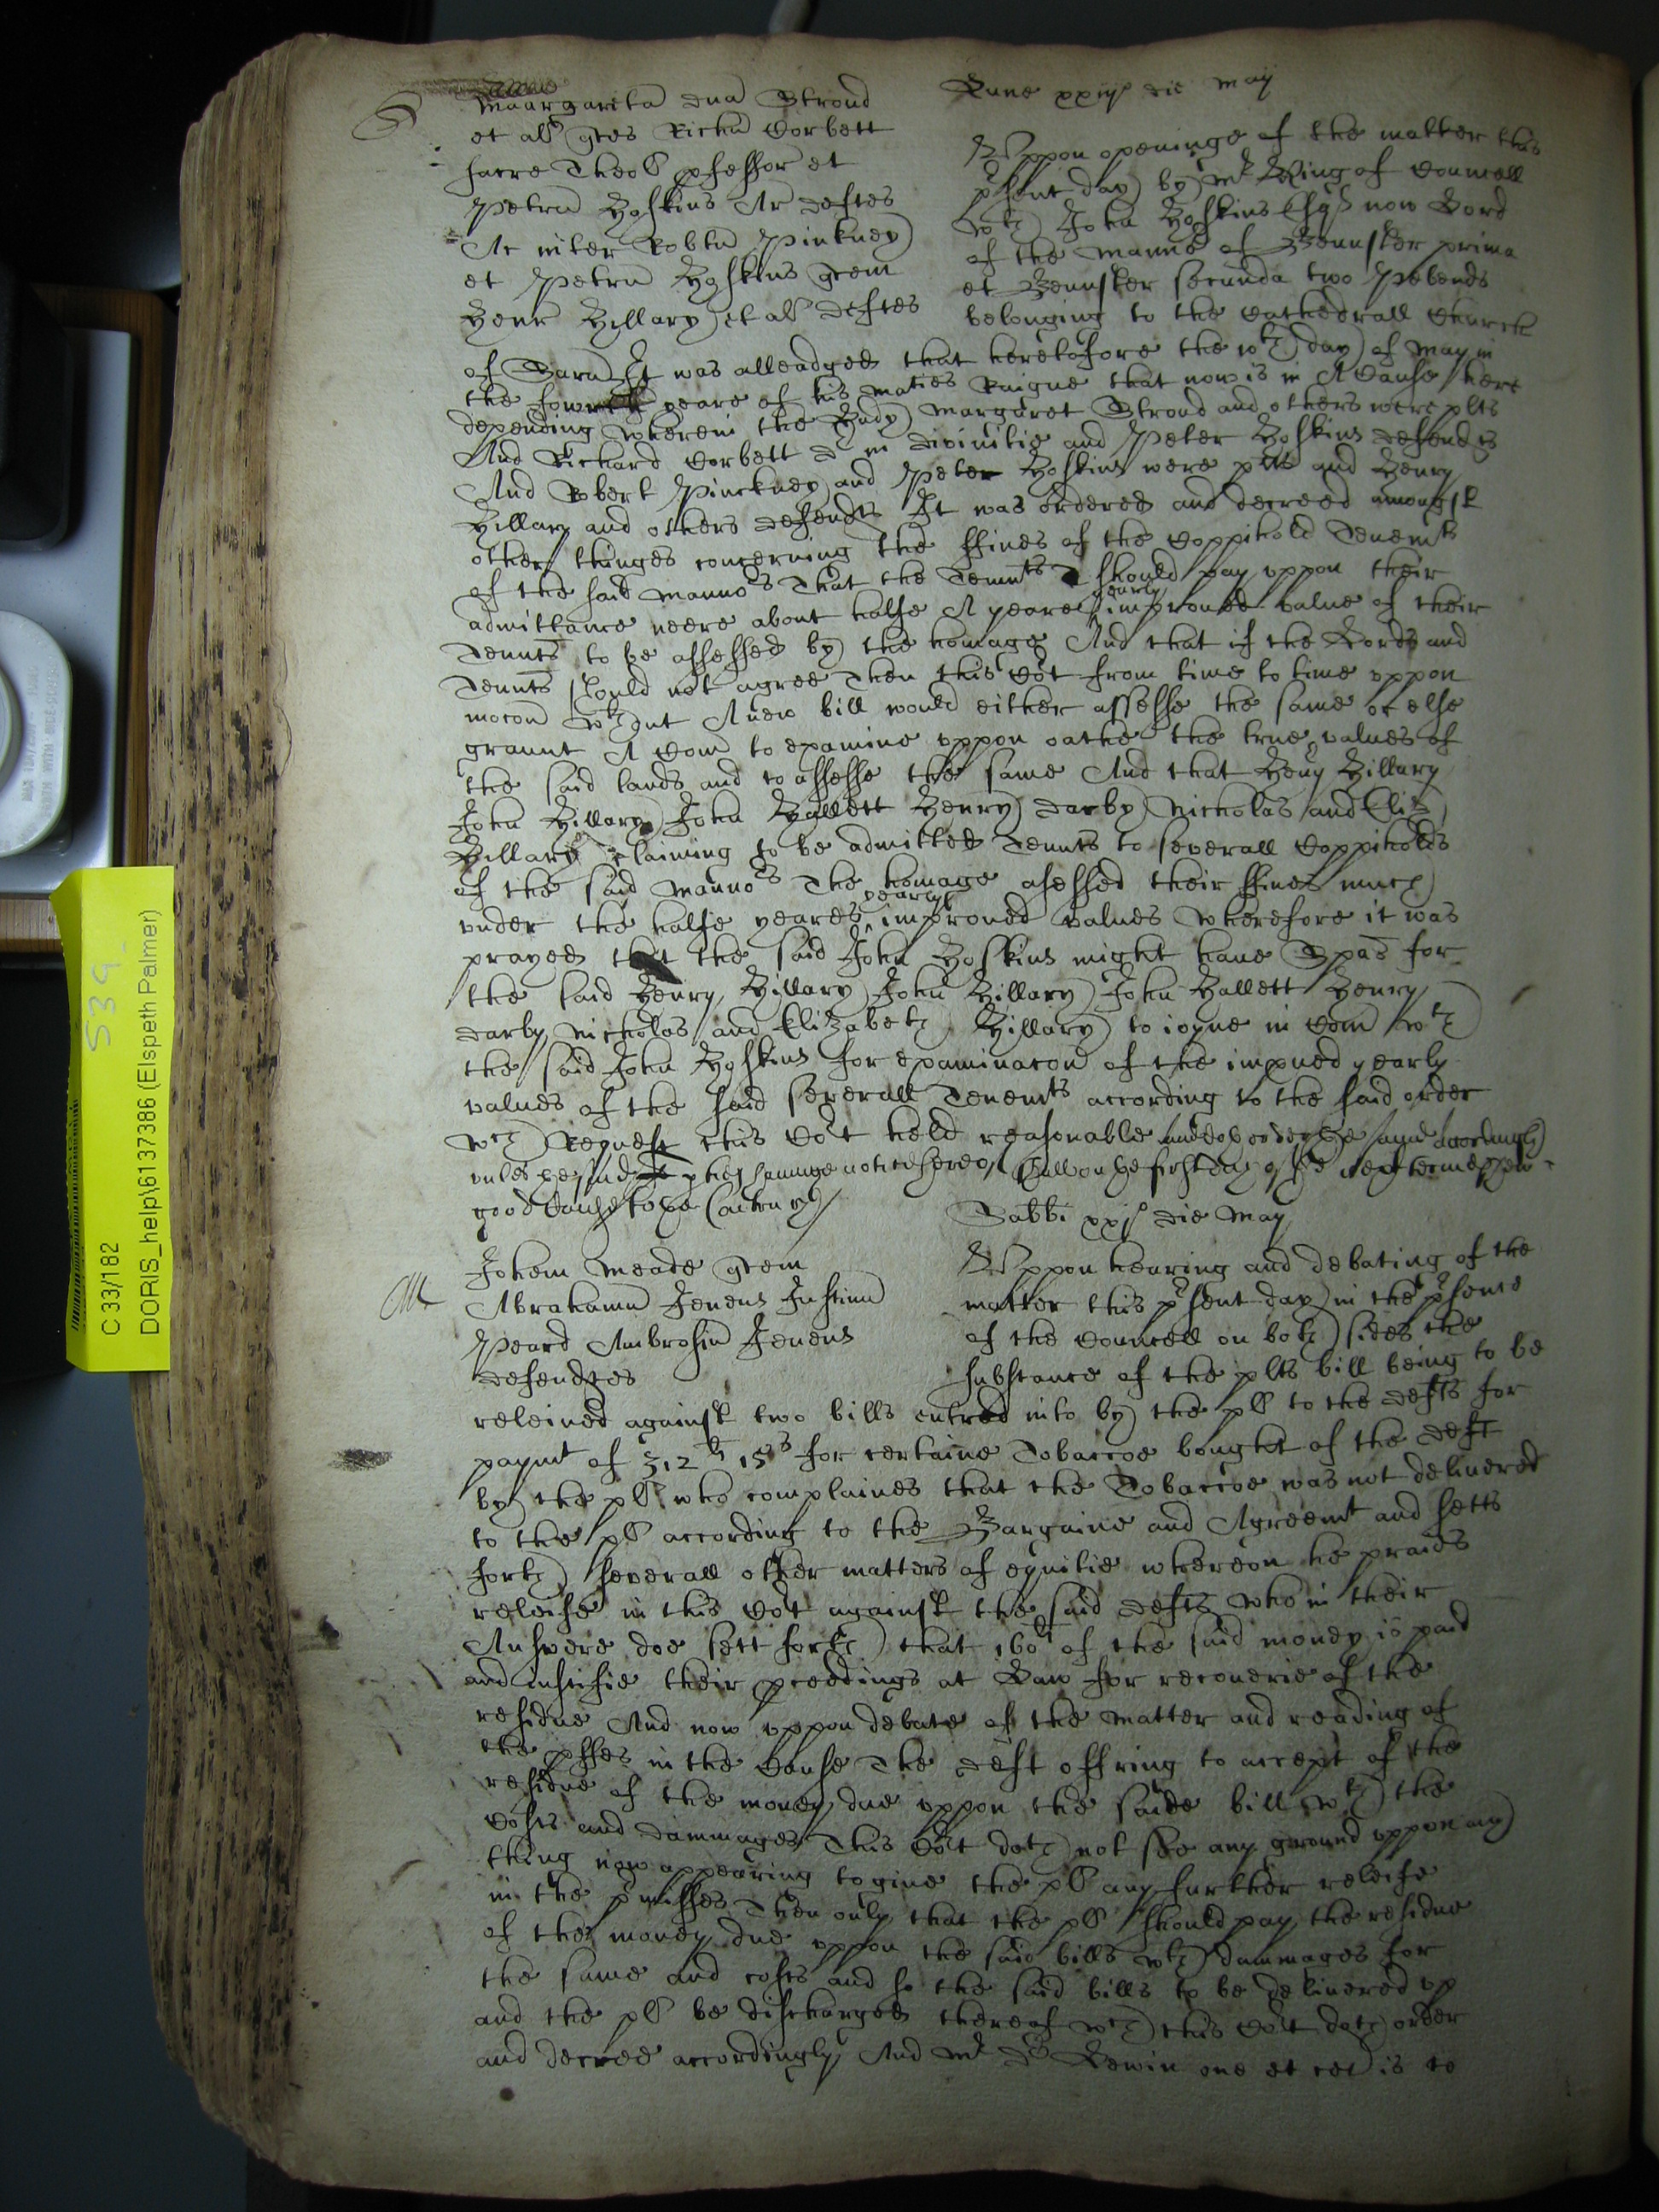 Lune xxiijo die May
Maargareta dna Stroud
et als quer Richu Corbett
sacre Theol pfessor et
Petru Hoskins Ar deftes
Ac inter Robtu Pinkney
et Petru Hoskins quer
Henr Hillary et als deftes
Uppon openinge of the matter this
psent day by Mr King of Councell
wth John Hoskins Esqr now Lord
of the Manno of Bemister prima
et Bemister secunda two Prebends
belonging to the Cathedrall Church
of Sarum It was alleadged that heretofore the wth day of May in
the fowrth yeare of his maties Raigne that now is in A Cause here
depending wherein the Lady Margaret Stroud and others were plts
And Richard Corbett Dr in divinitie and Peter Hoskins defendts
And Robert Pinckney and Peter Hoskins were plts and Henry
Hillary and others defendts It was ordered and decreed amongst
other thinges concerning the ffines of the Coppihold Tenemts
of the said Mannors That the Tennts should pay uppon their
admittance neere about halfe A yeares yearly improued value of their
Tenmts to be assessed by the homage And that if the Lords and
Tennts should not agree Then this Cot from time to time uppon
mocon wthout A new bill would either assesse the same or else
graunt A Com to examine uppon oathe the true values of
the said lands and to assesse the same And that Henry Hillary
John Hillary John Hallett Henry Darby Nicholas and Eliz
Hillary claiming to be admitted Tennts to severall Coppiholds
of the said Mannors The homage asessed their ffines much
under the halfe yeares yearly improued values Wherefore it was
prayed that the said John Hoskins might haue Spas for
the said Henry Hillary John Hillary John Hallett Henry
Darby Nicholas and Elizabeth Hillary to ioyne in Com wth
the said John Hoskins for examinacon of the impued yearly
values of the said severall Tenemts according to the said order
wch Request this Cot held reasonable and doth order the same accordingly
unles the said pties hauinge notice hereof shall on the first day of the next terme shew
good Cause to the contrary
Sabbi xxjo die May
Johem Meade quer
Abrahamu Jenens Justinu
Peard Ambrosiu Jenens
defendtes
Uppon hearing and debating of the
matter this psent day in the psence
of the Councell on both sides the
substance of the plts bill being to be
releiued against two bills entred into by the pl to the defts for
paymt of 312li 15s for certaine Tobaccoe bought of the deft
by the pl who complaines that the Tobaccoe was not deliuered
to the pl according to the Bargaine and Agreemt and setts
forth severall other matters of equitie whereon he praies
releife in this Cot against the said defts who in their
Answere doe sett forth that 160li of the said money is paid
and iustifie their pceedings at Law for recouerie of the
residue And now uppon debate of the matter and reading of
the pffes in the Cause The deft offring to accept of the
residue of the money due uppon the saide bills wth the
Costs and dammages This Cot doth not see any ground uppon any
thing now appearing to giue the pl any further releife
in the pmisses Then only that the pl should pay the residue
of the money due uppon the said bills wth dammages for
the same and costs and so the said bills to be deliuered up
and the pl be discharged thereof wch this Cot doth order
and decree accordingly And Mr Dr Lewin one et cet is to
C 33/182
DORIS_help\6137386 (Elspeth Palmer)
539